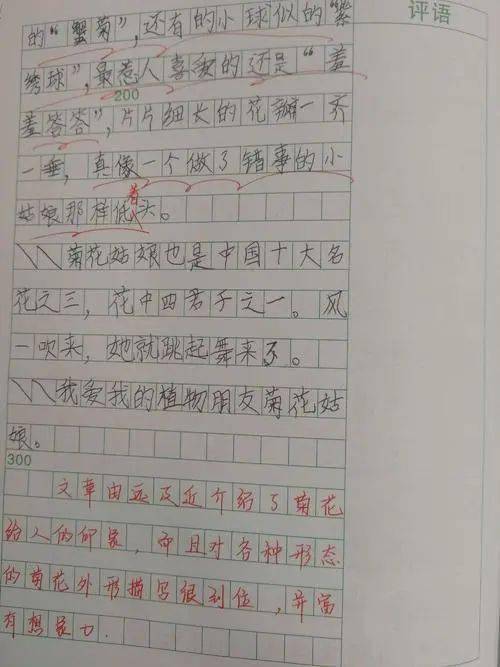 评语
的“蟹菊”，还有的小球似的“紫
绣球”，最惹人喜爱的还是“羞
200
羞答答”，片片细长的花瓣一齐
一垂，真像一个做了错事的小
姑娘那样低着头。
菊花姑娘也是中国十大名
花之三，花中四君子之一。风
一吹来，她就跳起舞来了。
我爱我的植物朋友菊花姑
娘。
300
文章由远及近介绍了菊花
给人的印象，而且对各种形态
的菊花外形描写很到位，并富
有想象力.